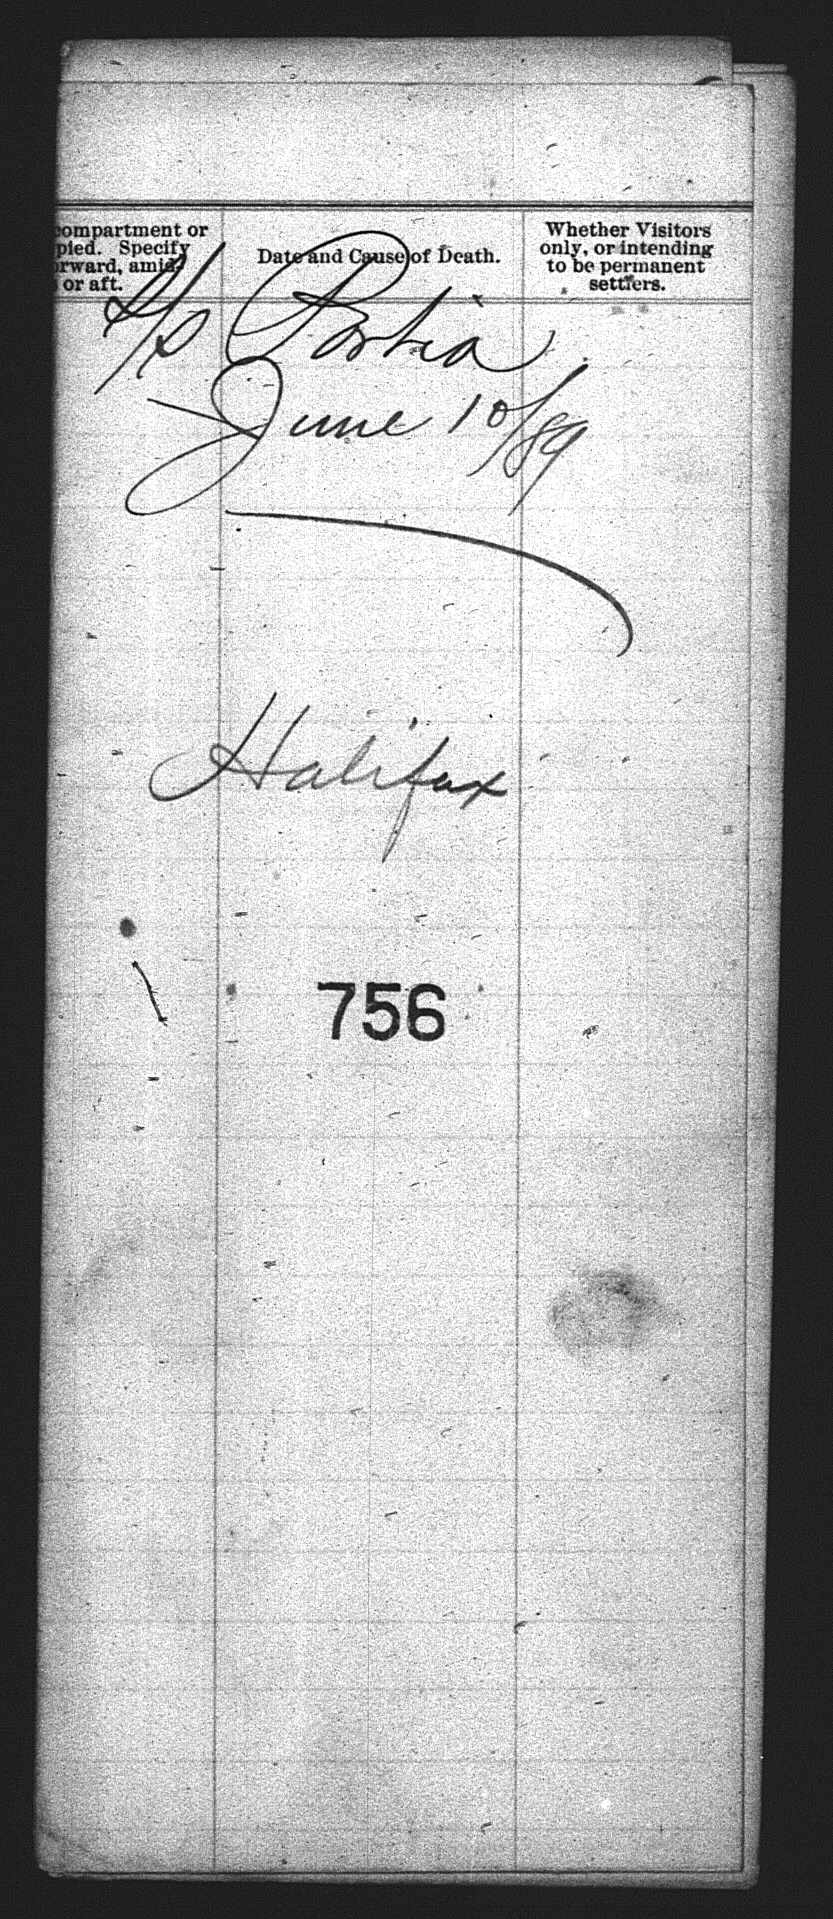 compartment or
pied. Specify
orward, amid-
or aft.
Date and Cause of Death.
Whether Visitors
only, or intending
to be permanent
settlers.
S/S Portia
June 10/89
Halifax
756